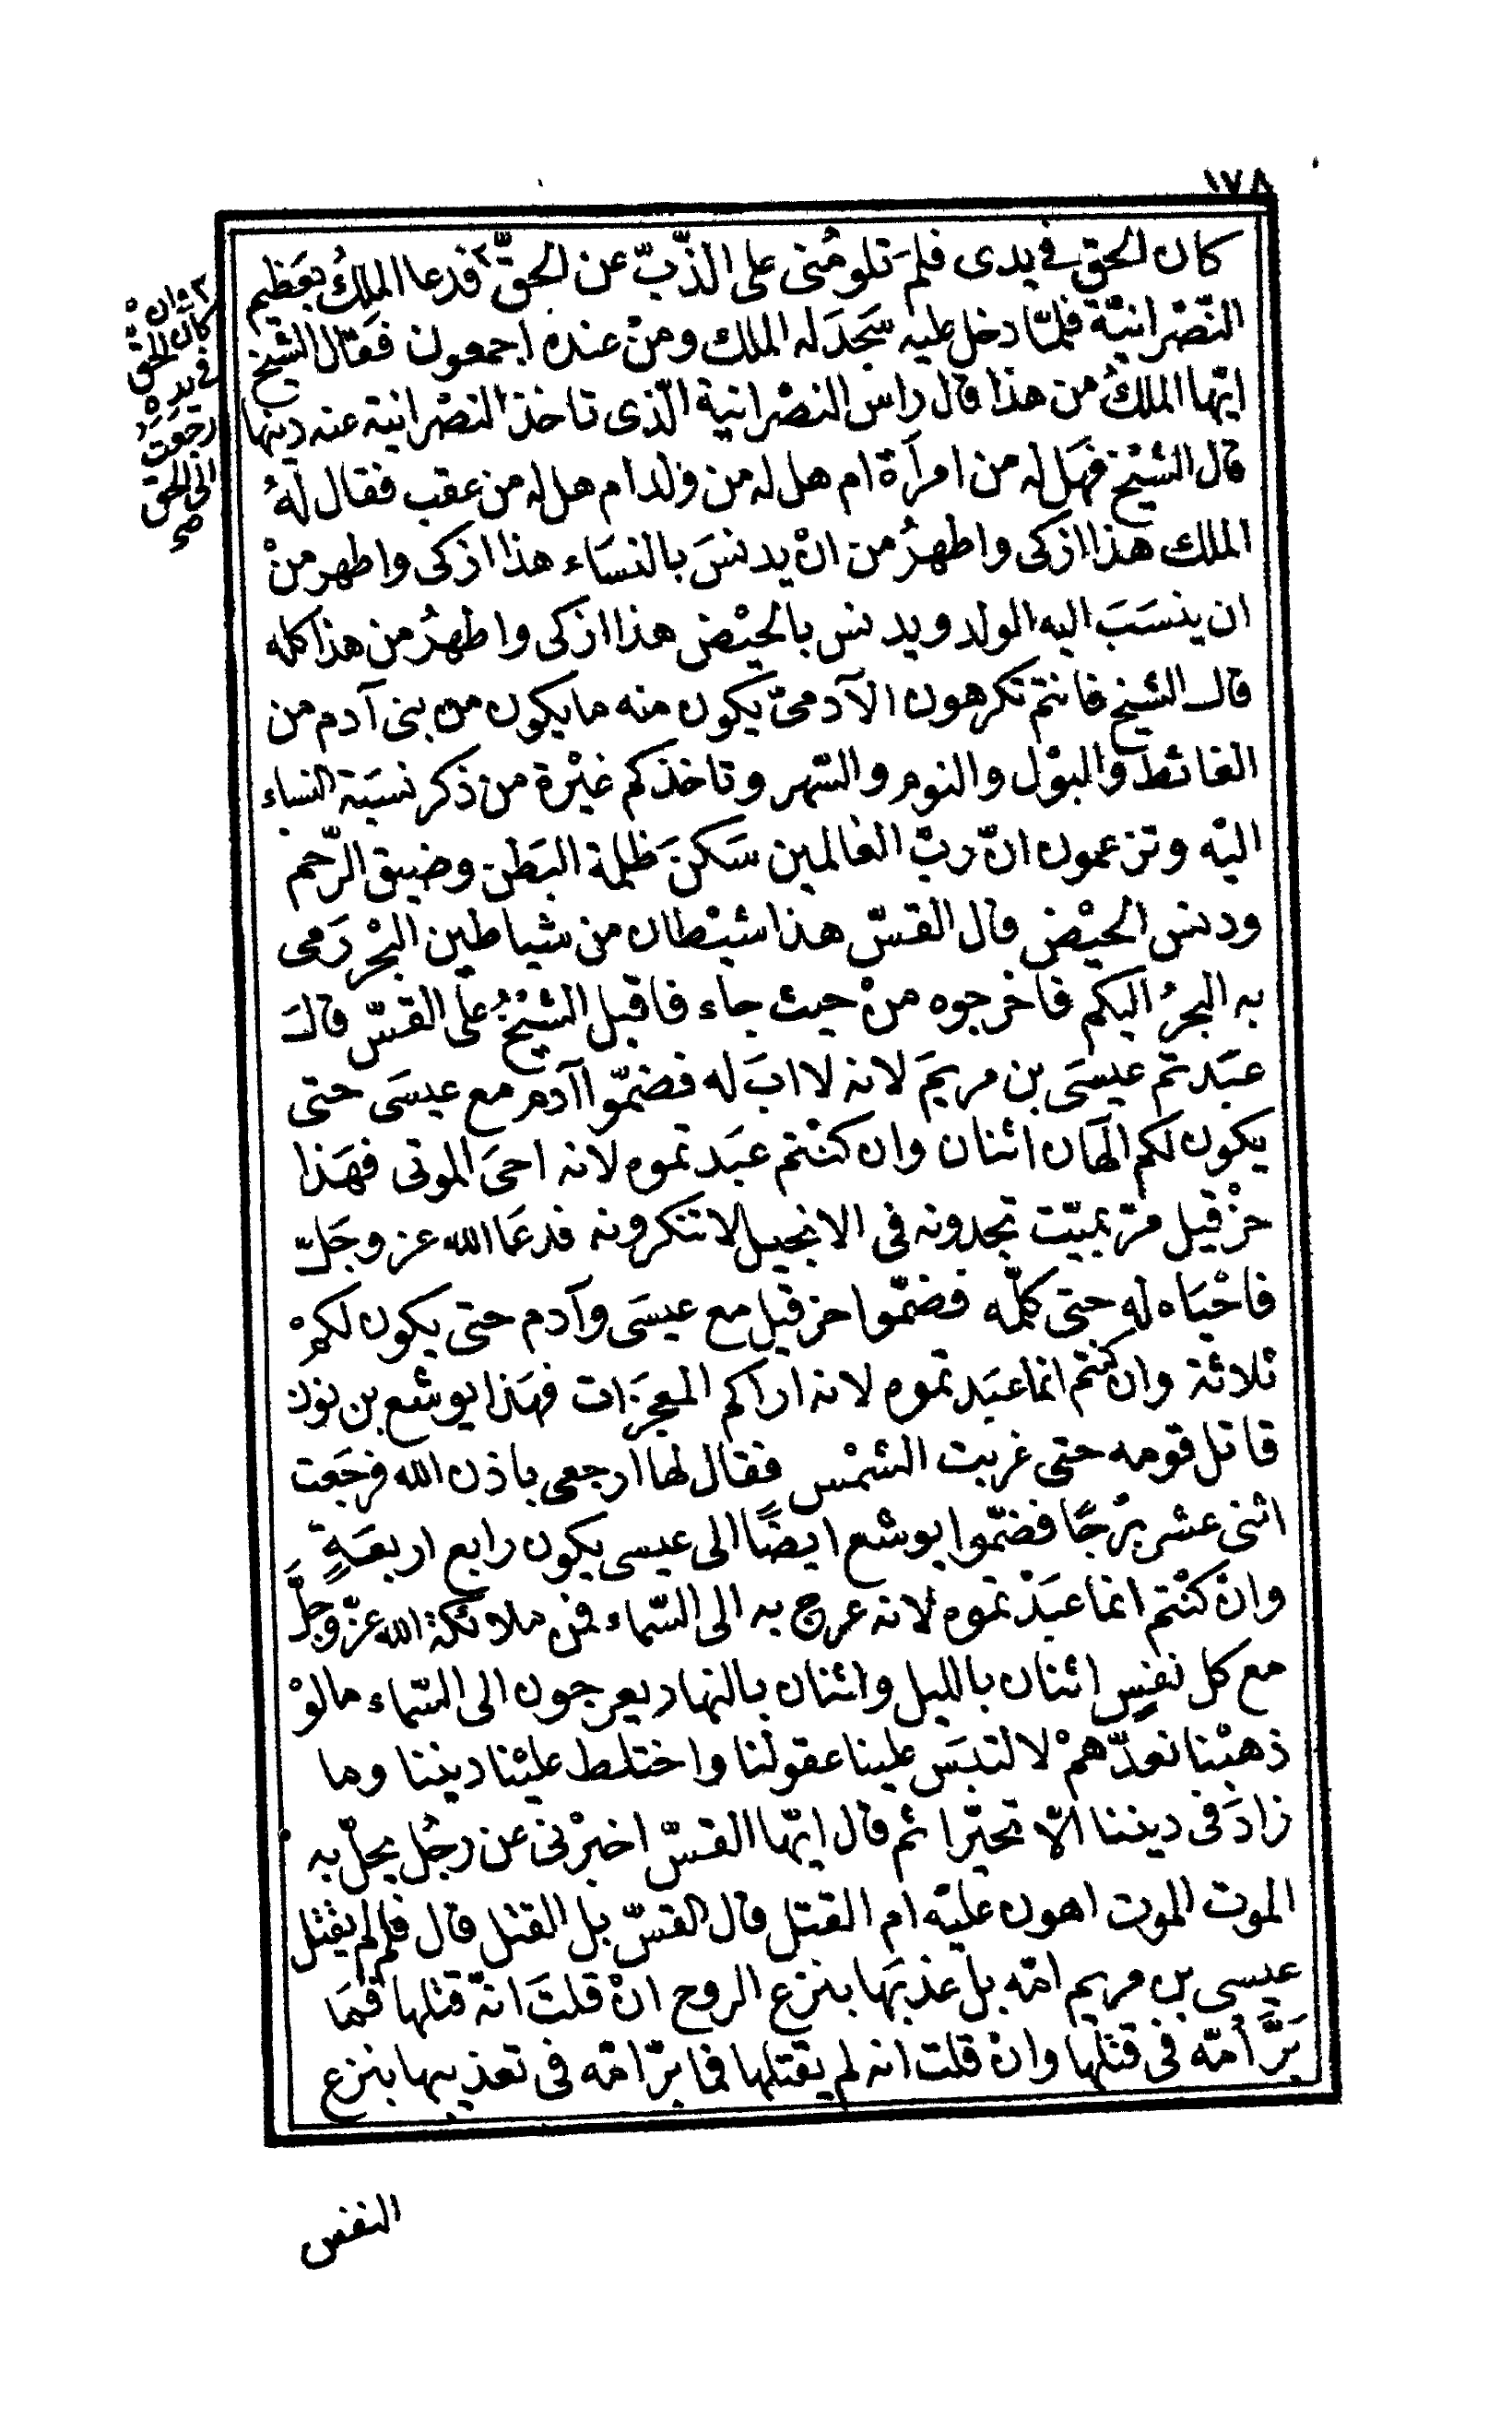 ١٧٨
كان الحق في يدى فلمَ تلومُنى على الذّبّ عن الحقّ ٢ فدعا الملكُ بعَظيم
النّصْرانيّة فلمّا دخل عليه سَجدَ له الملك ومنْ عنده اجمعون فقَال الشيخ
ايّها الملكُ من هذا قال راس النصْرانية الّذى تاخذ النصْرانية عنه دينها
قال الشيْخ فهَل له من امرآة ام هل له من ولد ام هل له من عقب فقال لهُ
الملك هذا ازكى واطهرُ من انْ يدنسَ بالنسَاء هذا ازكى واطهر منْ
ان ينسَبَ اليه الولد ويدنس بالحيْض هذا ازكى واطهرُ من هذا كله
قال الشيخ فانتم تكرهون الآدمىّ يكون منه ما يكون من بنى آدم من
الغائط والبوْل والنوم والسّهر وتاخذكم غيْرة من ذكر نسَبة النساء
اليْه وتزعمون انّ ربّ العالمين سَكنَ ظلمة البَطن وضيق الرّحم
ودنس الحيْض قال القسّ هذا شيْطان من شياطين البحْر رَمى
به البحرُ اليكم فاخرجوه منْ حيث جاء فاقبل الشيْخُ على القسّ قال
عبَدتم عيسَى بن مريمَ لانه لا ابَ له فضمّوا آدم مع عيسَى حتى
يكون لكم الٓهان اثنان وان كنْتم عبَدتموه لانه احىَ الموتى فهَذا
حزْقيل مرّ بميّت تجدونه فى الانجيل لا تنكرونه فدعَا الله عز وجَلّ
فاحْيَاه له حتى كلّمه فضمّوا حزقيل مع عيسَى وآدم حتى يكون لكمْ
ثلاثة وان كنتم انما عبَدتموه لانه اراكم المعجزَات فهَذا يوشع بن نون
قاتل قومه حتى غربت الشمْس فقال لها ارجعى باذن الله فرجَعت
اثنى عشر برُجًا فضمّوا يوشع ايضًا الى عيسى يكون رابع اربعَةٍ
وانْ كنْتم انما عبَدْتموه لانه عرج به الى السّماء فمن ملائكة الله عزّ وجلَّ
مع كل نفسٍ اثنان بالليل واثنان بالنهار يعرجون الى السّماء مالوْ
ذهبْنا نعدّهمْ لالتبَس علينا عقولُنا واختلط عليْنا ديننا وما
زادَ فى ديننا الّا تحيّرا ثم قال ايّها القسّ اخبرْنى عن رجُل يحلّ به
الموت الموت اهون عليْه ام القتل قال القسّ بل القتل قال فلم لم يقْتل
عيسى بن مريم امّه بل عذبَها بنزع الروح انْ قلتَ انّه قتلها فمَا
برَّ اُمّه فى قتْلها وانْ قلت انه لم يقتلها فما برّ امّه فى تعذيبها بنزع
٢ وانْ
كان الحقّ
فى يدهْ
رجعَتُ
الى الحق
صح
النفس